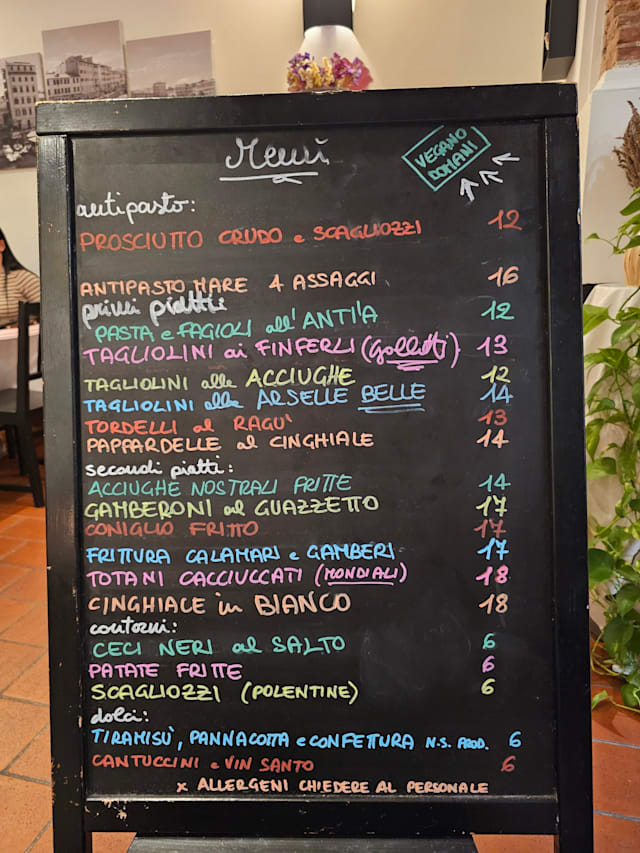 Menù
VEGANO
DOMANI
antipasto:
PROSCIUTTO CRUDO e SCAGLIOZZI 12
ANTIPASTO MARE 4 ASSAGGI 16
primi piatti:
PASTA e FAGIOLI all'ANTI'A 12
TAGLIOLINI ai FINFERLI (Galletti) 13
TAGLIOLINI alle ACCIUGHE 12
TAGLIOLINI alle ARSELLE BELLE 14
TORDELLI al RAGU' 13
PAPPARDELLE al CINGHIALE 14
secondi piatti:
ACCIUGHE NOSTRALI FRITTE 14
GAMBERONI al GUAZZETTO 17
CONIGLIO FRITTO 17
FRITTURA CALAMARI e GAMBERI 17
TOTANI CACCIUCCATI (MONDIALI) 18
CINGHIALE in BIANCO 18
contorni:
CECI NERI al SALTO 6
PATATE FRITTE 6
SCAGLIOZZI (POLENTINE) 6
dolci:
TIRAMISÙ, PANNACOTTA e CONFETTURA N.S. PROD. 6
CANTUCCINI e VIN SANTO 6
x ALLERGENI CHIEDERE AL PERSONALE